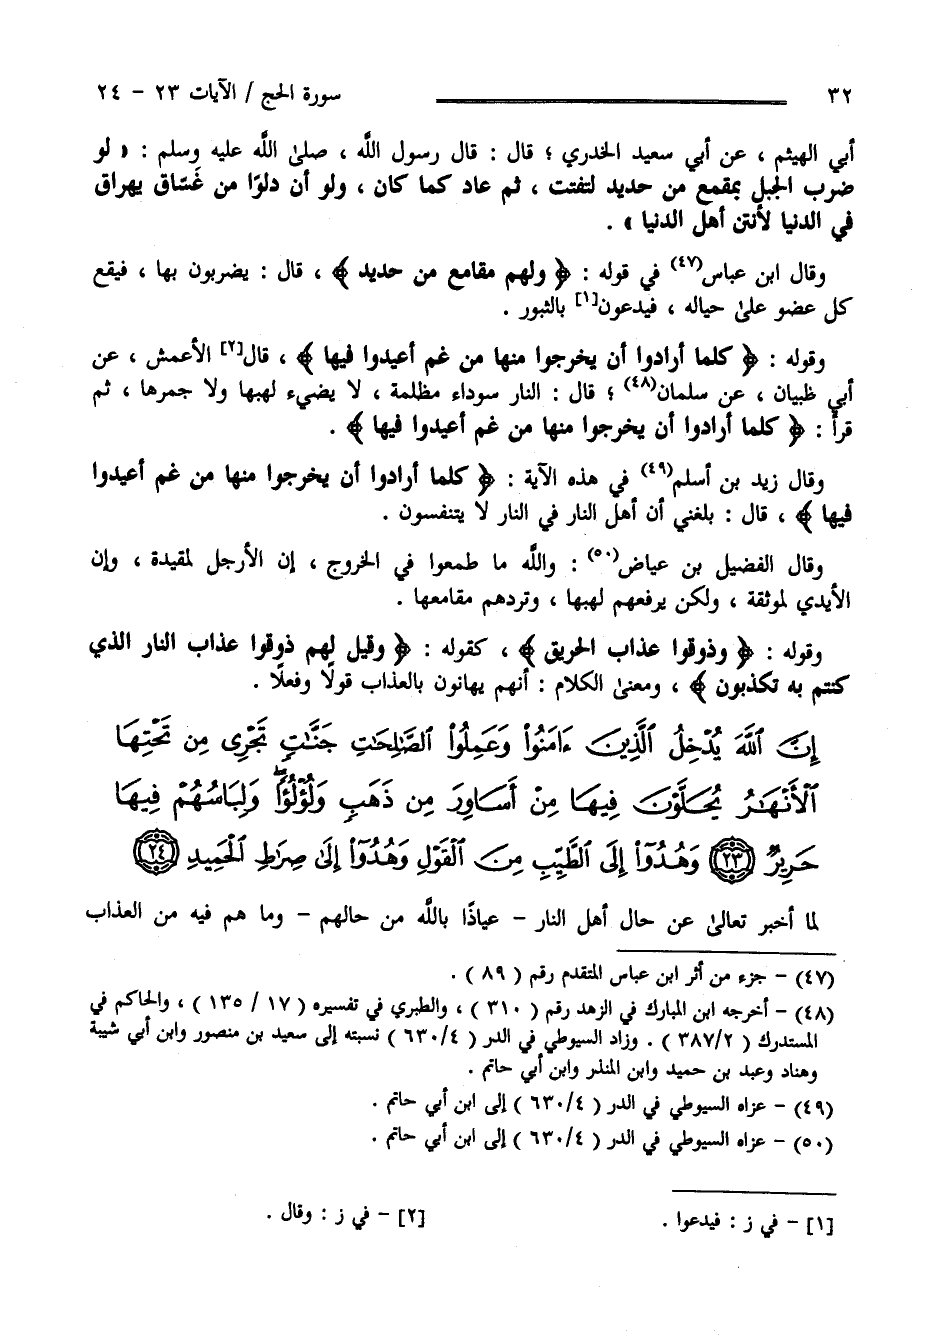 ٣٢ سورة الحج / الآيات ٢٣ - ٢٤
أبي الهيثم ، عن أبي سعيد الخدري ؛ قال : قال رسول اللَّه ، صلىٰ اللَّه عليه وسلم : « لو
ضرب الجبل بمقمع من حديد لتفتت ، ثم عاد كما كان ، ولو أن دلوًا من غَسَّاق يهراق
في الدنيا لأنتن أهل الدنيا » .
وقال ابن عباس(٤٧) في قوله : ﴿ ولهم مقامع من حديد ﴾ ، قال : يضربون بها ، فيقع
كل عضو علىٰ حياله ، فيدعون[١] بالثبور .
وقوله : ﴿ كلما أرادوا أن يخرجوا منها من غم أعيدوا فيها ﴾ ، قال[٢] الأعمش ، عن
أبي ظبيان ، عن سلمان(٤٨) ؛ قال : النار سوداء مظلمة ، لا يضيء لهبها ولا جمرها ، ثم
قرأ : ﴿ كلما أرادوا أن يخرجوا منها من غم أعيدوا فيها ﴾ .
وقال زيد بن أسلم(٤٩) في هذه الآية : ﴿ كلما أرادوا أن يخرجوا منها من غم أعيدوا
فيها ﴾ ، قال : بلغني أن أهل النار في النار لا يتنفسون .
وقال الفضيل بن عياض(٥٠) : واللَّه ما طمعوا في الخروج ، إن الأرجل لمقيدة ، وإن
الأيدي لموثقة ، ولكن يرفعهم لهبها ، وتردهم مقامعها .
وقوله : ﴿ وذوقوا عذاب الحريق ﴾ ، كقوله : ﴿ وقيل لهم ذوقوا عذاب النار الذي
كنتم به تكذبون ﴾ ، ومعنىٰ الكلام : أنهم يهانون بالعذاب قولًا وفعلًا .
إِنَّ ٱللَّهَ يُدْخِلُ ٱلَّذِينَ ءَامَنُوا۟ وَعَمِلُوا۟ ٱلصَّٰلِحَٰتِ جَنَّٰتٍ تَجْرِى مِن تَحْتِهَا
ٱلْأَنْهَٰرُ يُحَلَّوْنَ فِيهَا مِنْ أَسَاوِرَ مِن ذَهَبٍ وَلُؤْلُؤًا ۖ وَلِبَاسُهُمْ فِيهَا
حَرِيرٌ ٢٣ وَهُدُوٓا۟ إِلَى ٱلطَّيِّبِ مِنَ ٱلْقَوْلِ وَهُدُوٓا۟ إِلَىٰ صِرَٰطِ ٱلْحَمِيدِ ٢٤
لما أخبر تعالىٰ عن حال أهل النار - عياذًا باللَّه من حالهم - وما هم فيه من العذاب
(٤٧) - جزء من أثر ابن عباس المتقدم رقم ( ٨٩ ) .
(٤٨) - أخرجه ابن المبارك في الزهد رقم ( ٣١٠ ) ، والطبري في تفسيره ( ١٧ / ١٣٥ ) ، والحاكم في
المستدرك ( ٣٨٧/٢ ) . وزاد السيوطي في الدر ( ٦٣٠/٤ ) نسبته إلى سعيد بن منصور وابن أبي شيبة
وهناد وعبد بن حميد وابن المنذر وابن أبي حاتم .
(٤٩) - عزاه السيوطي في الدر ( ٦٣٠/٤ ) إلى ابن أبي حاتم .
(٥٠) - عزاه السيوطي في الدر ( ٦٣٠/٤ ) إلى ابن أبي حاتم .
[١] - في ز : فيدعوا . [٢] - في ز : وقال .